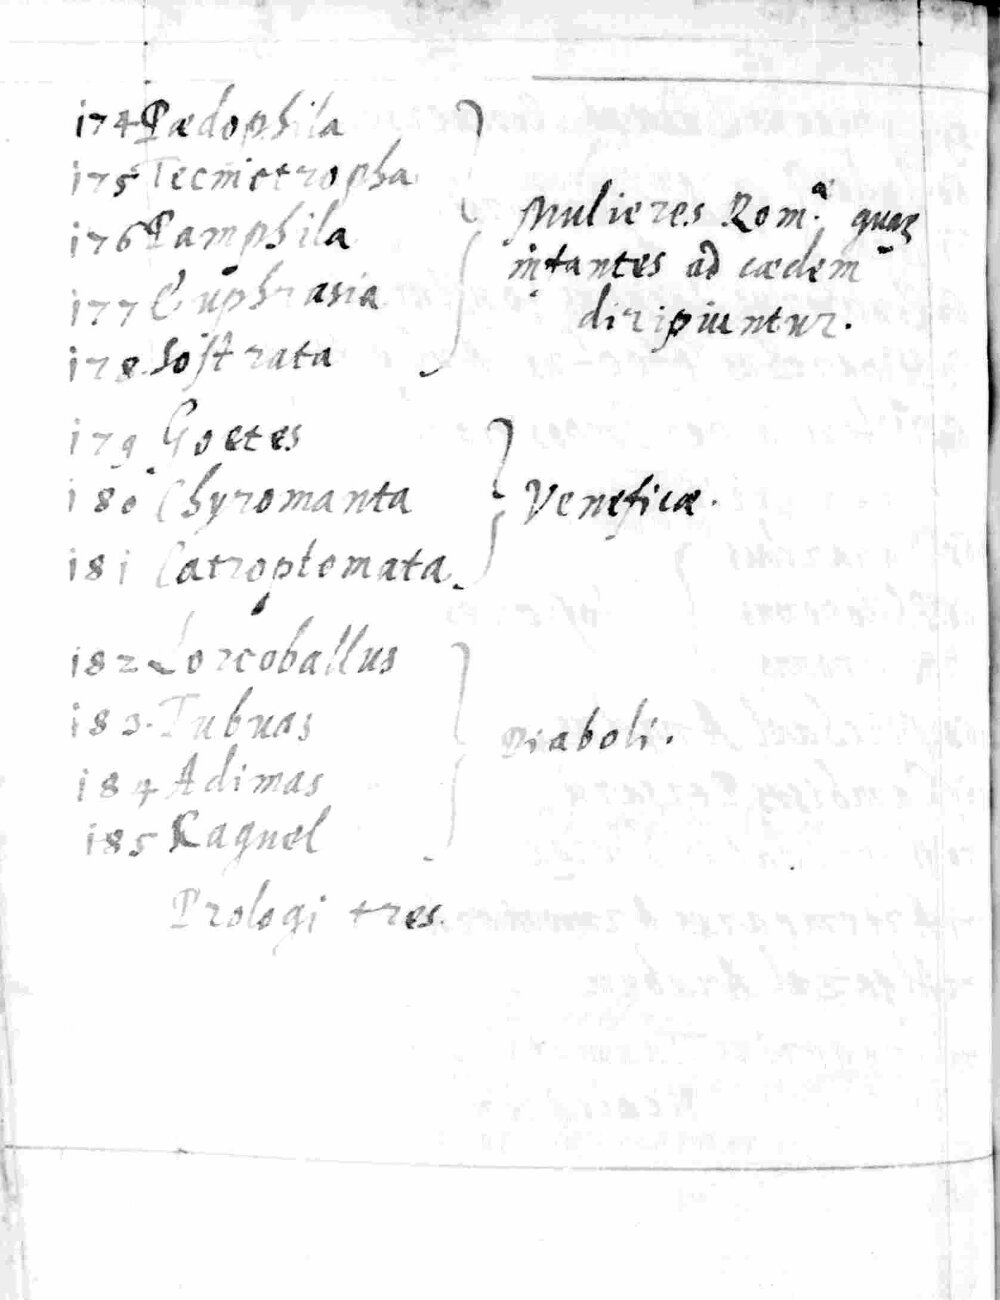 174 Pædophila
175 Tecnictropha
176 Pamphila
177 Euphrasia
178. Sostrata
Mulieres Rom.æ quaꝝ
infantes ad cædem
diripiuntur.
179 Goetes
180 Chyromanta
181 Catroptomata
Veneficæ.
182 Lorcoballus
183. Tubuas
184 Adimas
185 Raguel
Diaboli.
Prologi tres.